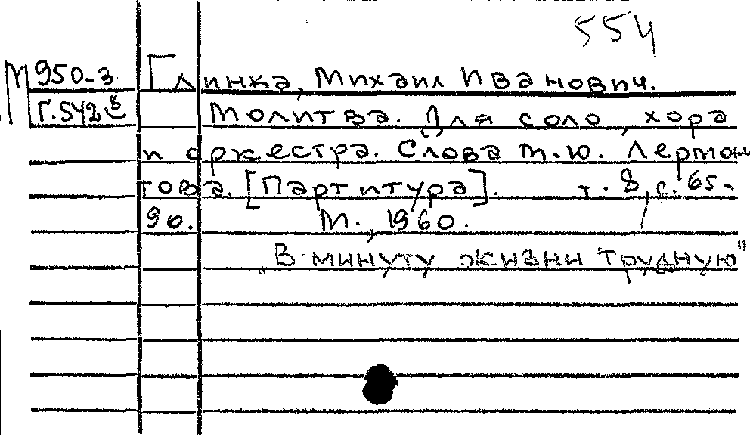 554
М950-3 Глинка, Михаил Иванович.
Г.542 Молитва. Для соло, хора
и оркестра. Слова М.Ю. Лермон
това. [Партитура]. т. 8, с. 65-
90. М., 1960.
„В минуту жизни трудную"